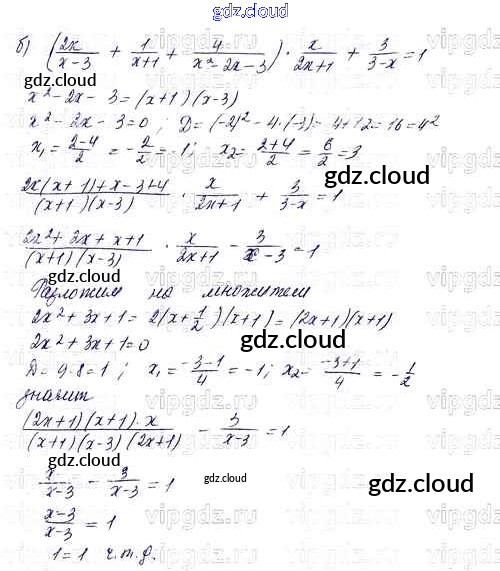 gdz.cloud
б) (2x/(x-3) + 1/(x+1) + 4/(x²-2x-3)) · x/(2x+1) + 3/(3-x) = 1
gdz.cloud
x²-2x-3=(x+1)(x-3)
x²-2x-3=0; D=(-2)²-4·(-3)=4+12=16=4²
x₁=(2-4)/2=-2/2=-1; x₂=(2+4)/2=6/2=3
gdz.cloud
(2x(x+1)+x-3+4)/((x+1)(x-3)) · x/(2x+1) + 3/(3-x) = 1
gdz.cloud
(2x²+2x+x+1)/((x+1)(x-3)) · x/(2x+1) - 3/(x-3) = 1
gdz.cloud
Разложим на множители
2x²+3x+1=2(x+1/2)(x+1)=(2x+1)(x+1)
2x²+3x+1=0
gdz.cloud
D=9-8=1; x₁=(-3-1)/4=-1; x₂=(-3+1)/4=-1/2
значит
((2x+1)(x+1)·x)/((x+1)(x-3)(2x+1)) - 3/(x-3) = 1
gdz.cloud
x/(x-3) - 3/(x-3) = 1
gdz.cloud
gdz.cloud
(x-3)/(x-3) = 1
1=1 ч.т.д.
gdz.cloud